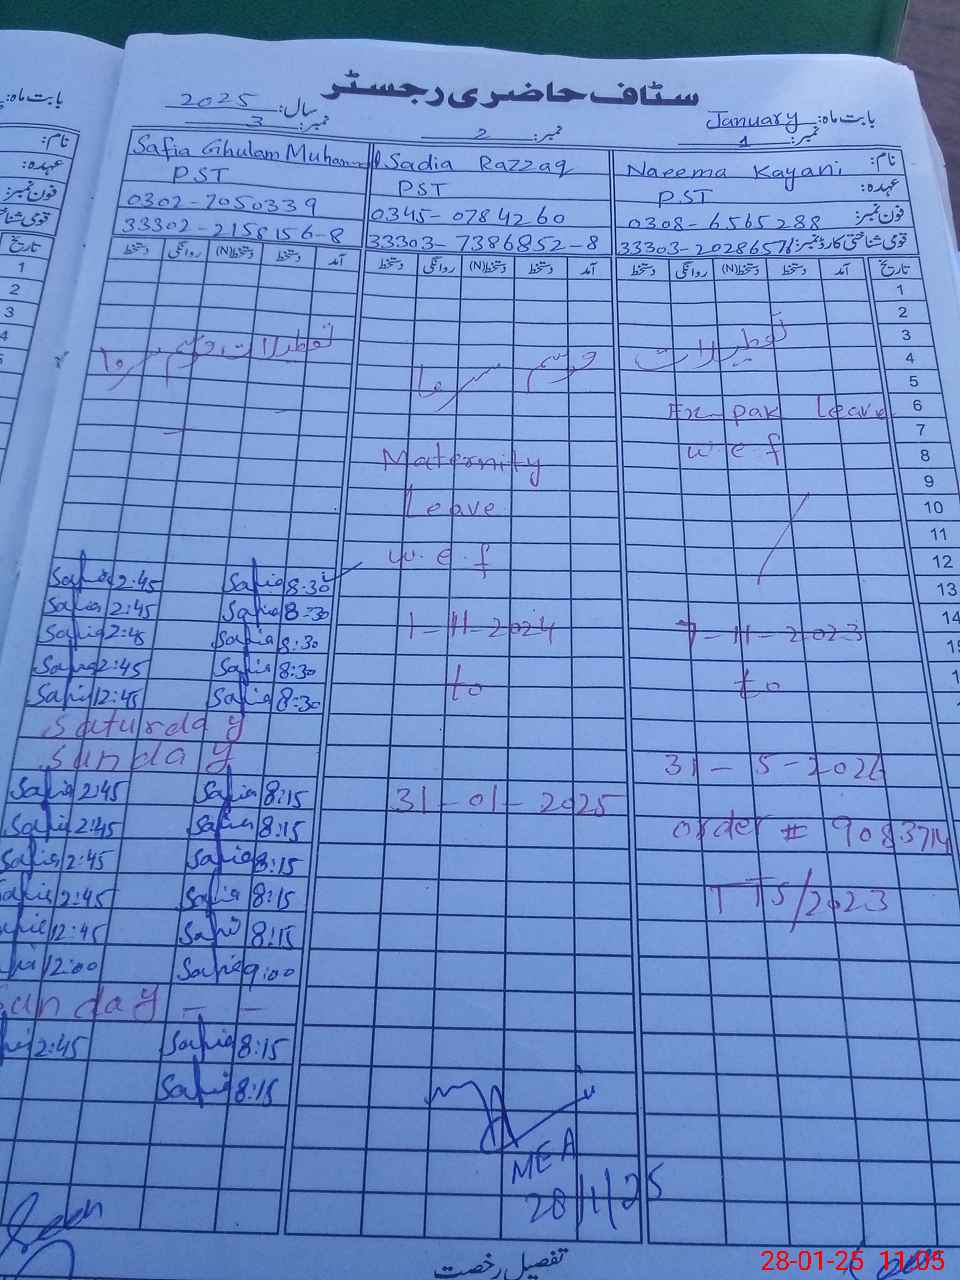 سٹاف حاضری رجسٹر
بابت ماہ: January
سال: 2025
نمبر: 1
نمبر: 2
نمبر: 3
نام: Naeema Kayani
Sadia Razzaq
Safia Ghulam Muhammad
عہدہ: PST
PST
PST
فون نمبر: 0308-6565288
0345-0784260
0302-7050339
قومی شناختی کارڈ نمبر: 33303-2028657
33303-7386852-8
33302-2158156-8
تاریخ آمد دستخط دستخط(N) روانگی دستخط
آمد دستخط دستخط(N) روانگی دستخط
آمد دستخط دستخط(N) روانگی دستخط
1
2
3
4
5
6
7
8
9
10
11
12
13
14
تعطیلات
موسم سرما
تعطیلات موسم سرما
Ex-pak leave
w.e.f
7-11-2023
to
31-5-2026
order # 908374
TTS/2023
Maternity
Leave
w.e.f
1-11-2024
to
31-01-2025
Safia 8:30 Safia 2:45
Safia 8:30 Safia 2:45
Safia 8:30 Safia 2:45
Safia 8:30 Safia 2:45
Safia 8:30 Safia 12:45
Saturday
Sunday
Safia 8:15 Safia 2:45
Safia 8:15 Safia 2:45
Safia 8:15 Safia 2:45
Safia 8:15 Safia 2:45
Safia 8:15 Safia 12:45
Safia 9:00 12:00
Sunday
Safia 8:15 2:45
Safia 8:15
MEA
28/1/25
تفصیل رخصت
28-01-25 11:05
بابت ماہ:
نام:
عہدہ:
فون نمبر:
تاریخ
1
2
3
4